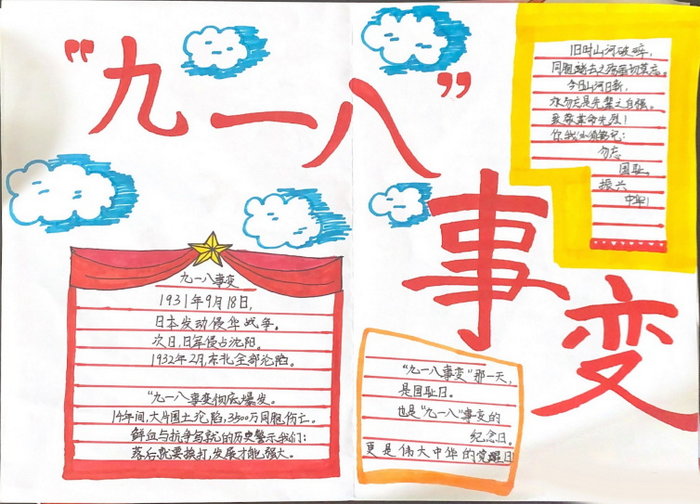 “九一八”
事变
旧时山河破碎,
同胞逝去之殇莫忘。
今日山河日新,
永勿忘是先辈之自强。
致敬革命先烈!
你我必须铭记:
勿忘
国耻,
振兴
中华!
九一八事变
1931年9月18日,
日本发动侵华战争。
次日,日军侵占沈阳。
1932年2月,东北全部沦陷。
“九一八事变彻底爆发。
14年间,大片国土沦陷,3500万同胞伤亡。
鲜血与抗争写就的历史警示我们:
落后就要挨打,发展才能强大。
“九一八事变”那一天,
是国耻日。
也是“九一八”事变的
纪念日。
更是伟大中华的觉醒日